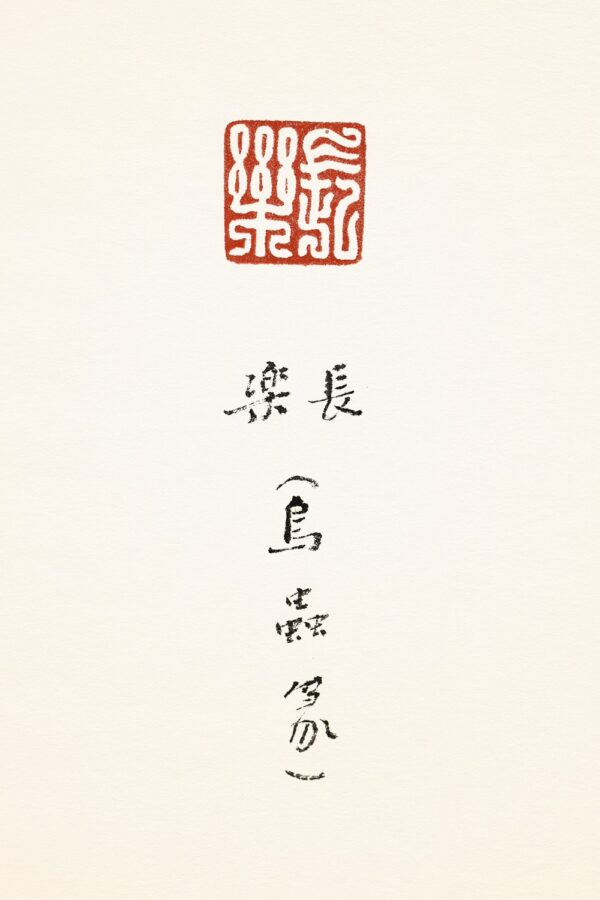 長樂
長樂
(鳥蟲篆)